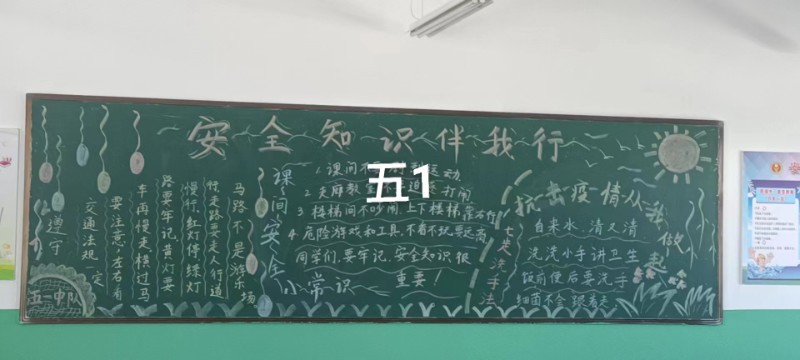 安全知识伴我行
五1
马路不是游乐场
行走路要走人行道
慢行,红灯停绿灯
路要牢记黄灯要
车再慢走横过马
要注意,左右看
交通法规一定
遵守
五一中队
课间安全小常识
1.课间不
运动
2.
打闹
3 楼梯间不吵闹,上下楼梯靠右行
4 危险游戏和工具,不看不玩要远离
同学们,要牢记,安全知识很
重要!
七步洗手法
抗击疫情从我做起
自来水,清又清
洗洗小手讲卫生
饭前便后要洗手
细菌不会跟着走